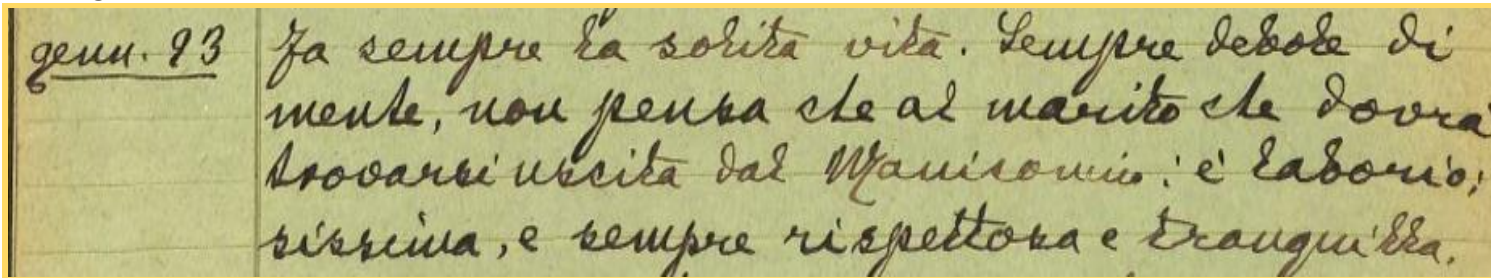 genn. 93 Fa sempre la solita vita. Sempre debole di
mente, non pensa che al marito che dovrà
trovarsi uscita dal Manicomio: è laborio:
sissima, e sempre rispettosa e tranquilla.